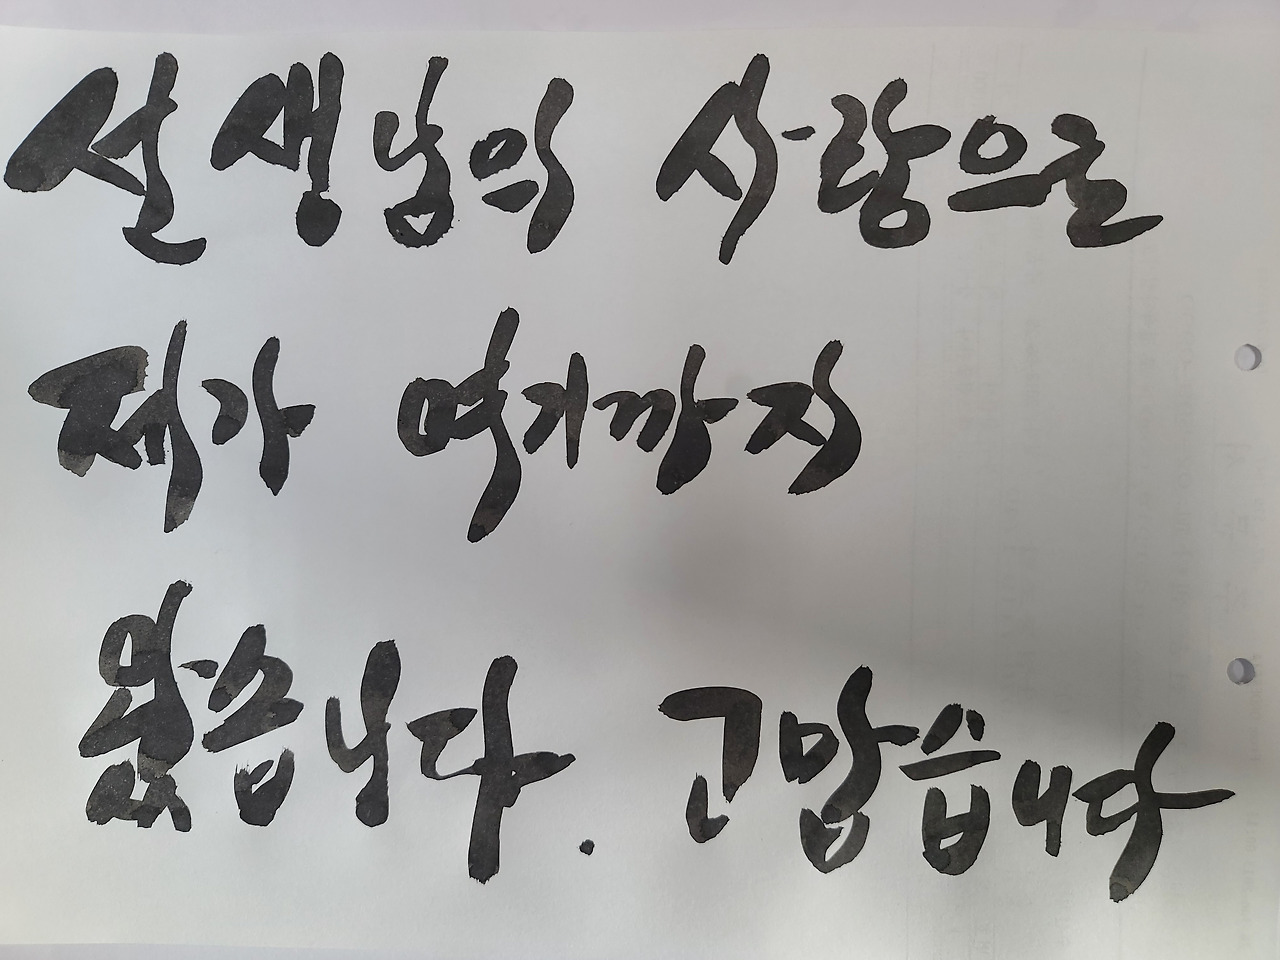 선생님의 사랑으로
제가 여기까지
왔습니다. 고맙습니다